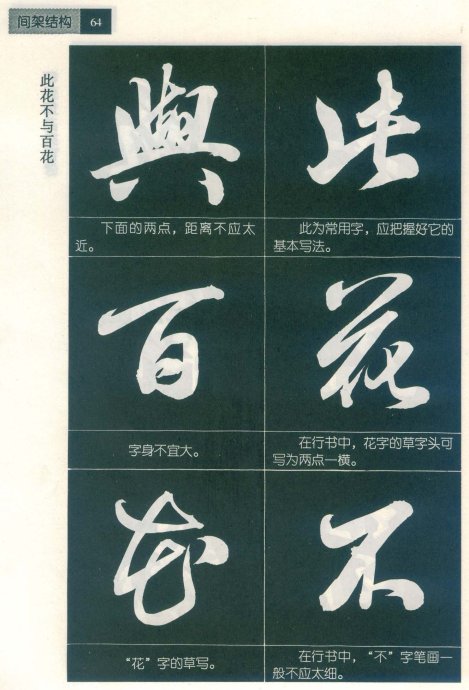 间架结构 64
此花不与百花
此
此为常用字，应把握好它的
基本写法。
花
在行书中，花字的草字头可
写为两点一横。
不
在行书中，“不”字笔画一
般不应太细。
與
下面的两点，距离不应太
近。
百
字身不宜大。
花
“花”字的草写。